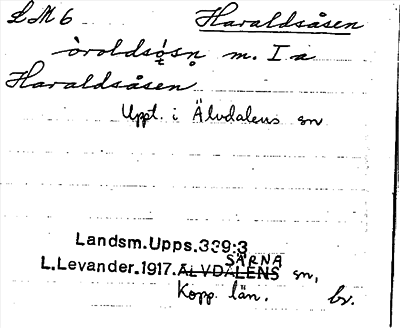 LM6 Haraldsåsen
òroldsǫ́sn̥ m. I a
Haraldsåsen
Uppt. i Älvdalens sn
Landsm.Upps.339:3
SÄRNA
L.Levander.1917. ÄLVDALENS sn,
Kopp. län. br.